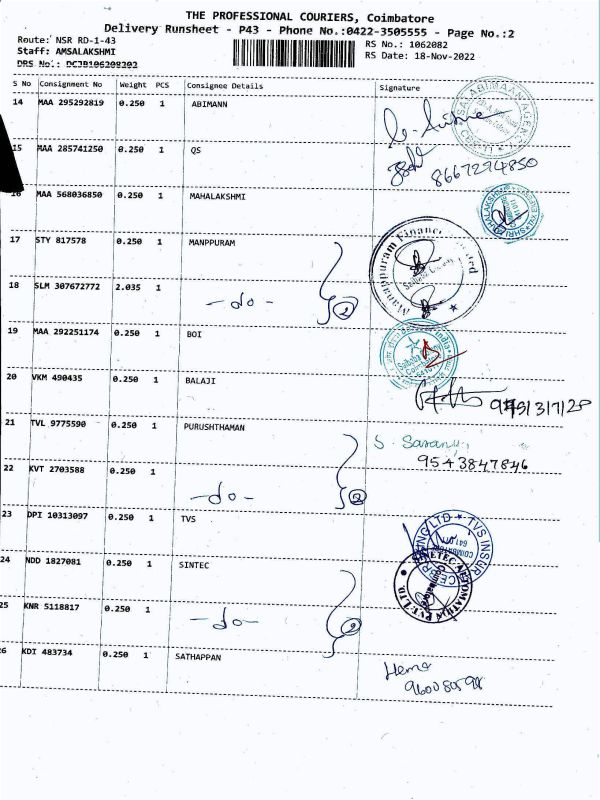 THE PROFESSIONAL COURIERS, Coimbatore
Delivery Runsheet - P43 - Phone No.:0422-3505555 - Page No.:2
Route: NSR RD-1-43
RS No.: 1062082
Staff: AMSALAKSHMI
RS Date: 18-Nov-2022
DRS No.: DCJB106208202
S No Consignment No Weight PCS Consignee Details Signature
14 MAA 295292819 0.250 1 ABIMANN
15 MAA 285741250 0.250 1 QS
8667294850
16 MAA 568036850 0.250 1 MAHALAKSHMI
17 STY 817578 0.250 1 MANPPURAM
Manappuram Finance Limited
18 SLM 307672772 2.035 1 -do- 2
19 MAA 292251174 0.250 1 BOI
20 VKM 490435 0.250 1 BALAJI
21 TVL 9775590 0.250 1 PURUSHTHAMAN
S. Saranya
9543847846
22 KVT 2703588 0.250 1 -do- 2
23 DPI 10313097 0.250 1 TVS
24 NDD 1827081 0.250 1 SINTEC
25 KNR 5118817 0.250 1 -do- 2
26 KDI 483734 0.250 1 SATHAPPAN
Hema